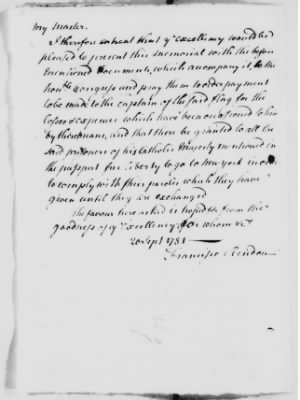 my Master.
I therefore intreat that yr excellency would be
pleased to present this memorial with the before
mentioned documents, which accompany it, to the
honble Congress and pray them to order payment
to be made to the captain of the said flag for the
Cost or expences which have been occasioned to him
by the, and that there be granted to all the
said prisoners of his Catholic Majesty inclosed in
the passport full liberty to go to New york in order
to comply with their paroles which they have
given until they are exchanged
the favour here asked is hoped for from the
goodness of yr Excellency, for whom &c
20 Sept 1781
Francisco Rendon